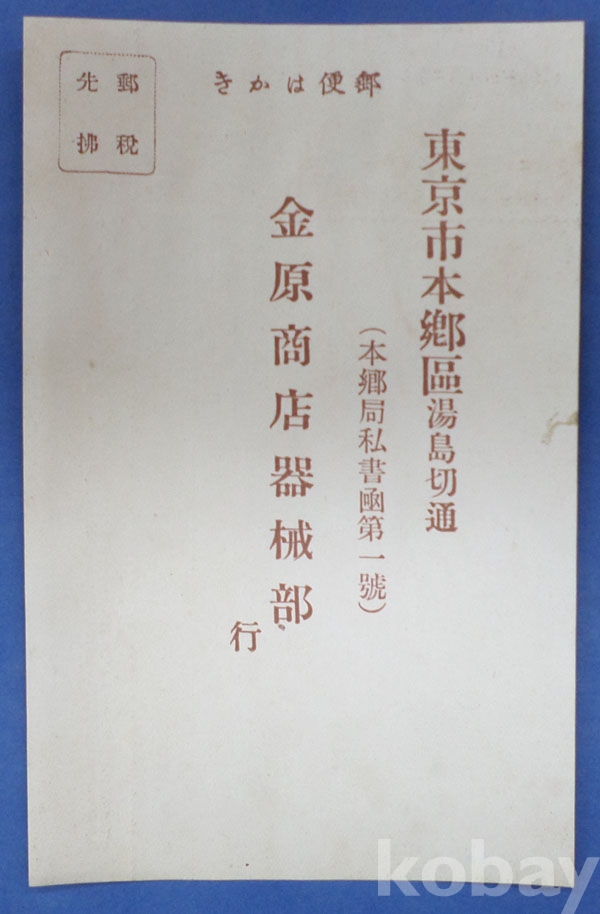 郵便はかき
郵税
先拂
東京市本鄕區湯島切通
(本鄕局私書凾第一號)
金原商店器械部
行
kobay